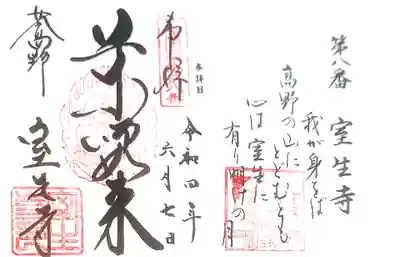 第八番 室生寺
我が身をば
高野の山に
とどむとも
心は室生に
有り明けの月
奉拝
参拝日
令和四年
六月七日
弥勒如来
女人高野
室生寺